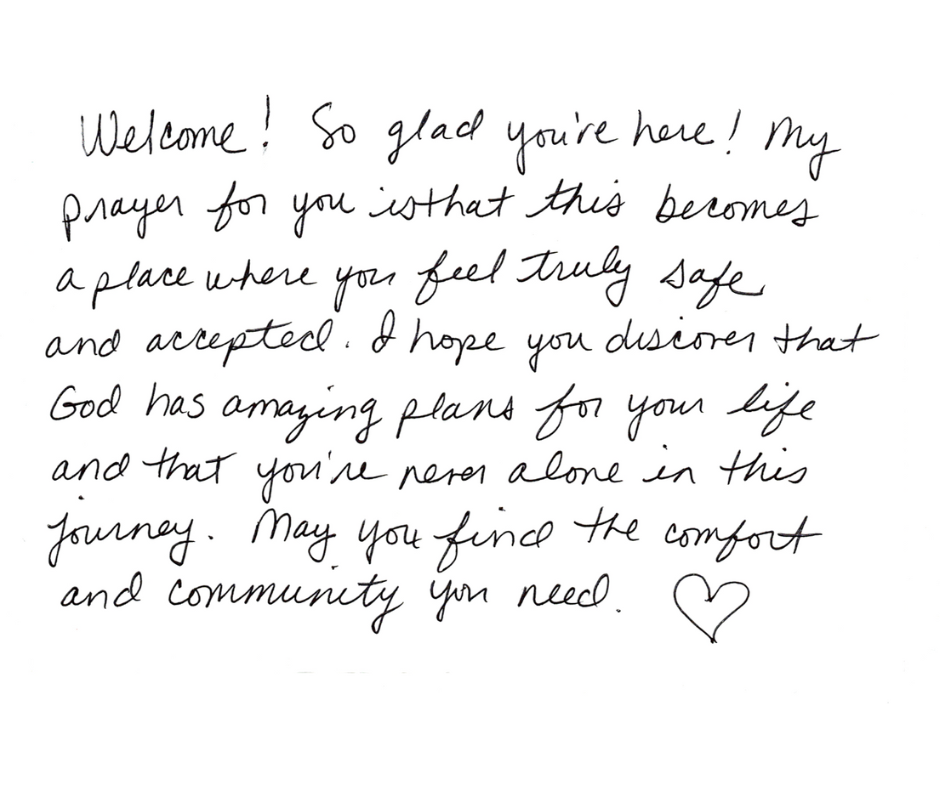 Welcome! So glad you're here! My
prayer for you is that this becomes
a place where you feel truly safe
and accepted. I hope you discover that
God has amazing plans for your life
and that you're never alone in this
journey. May you find the comfort
and community you need. ♡